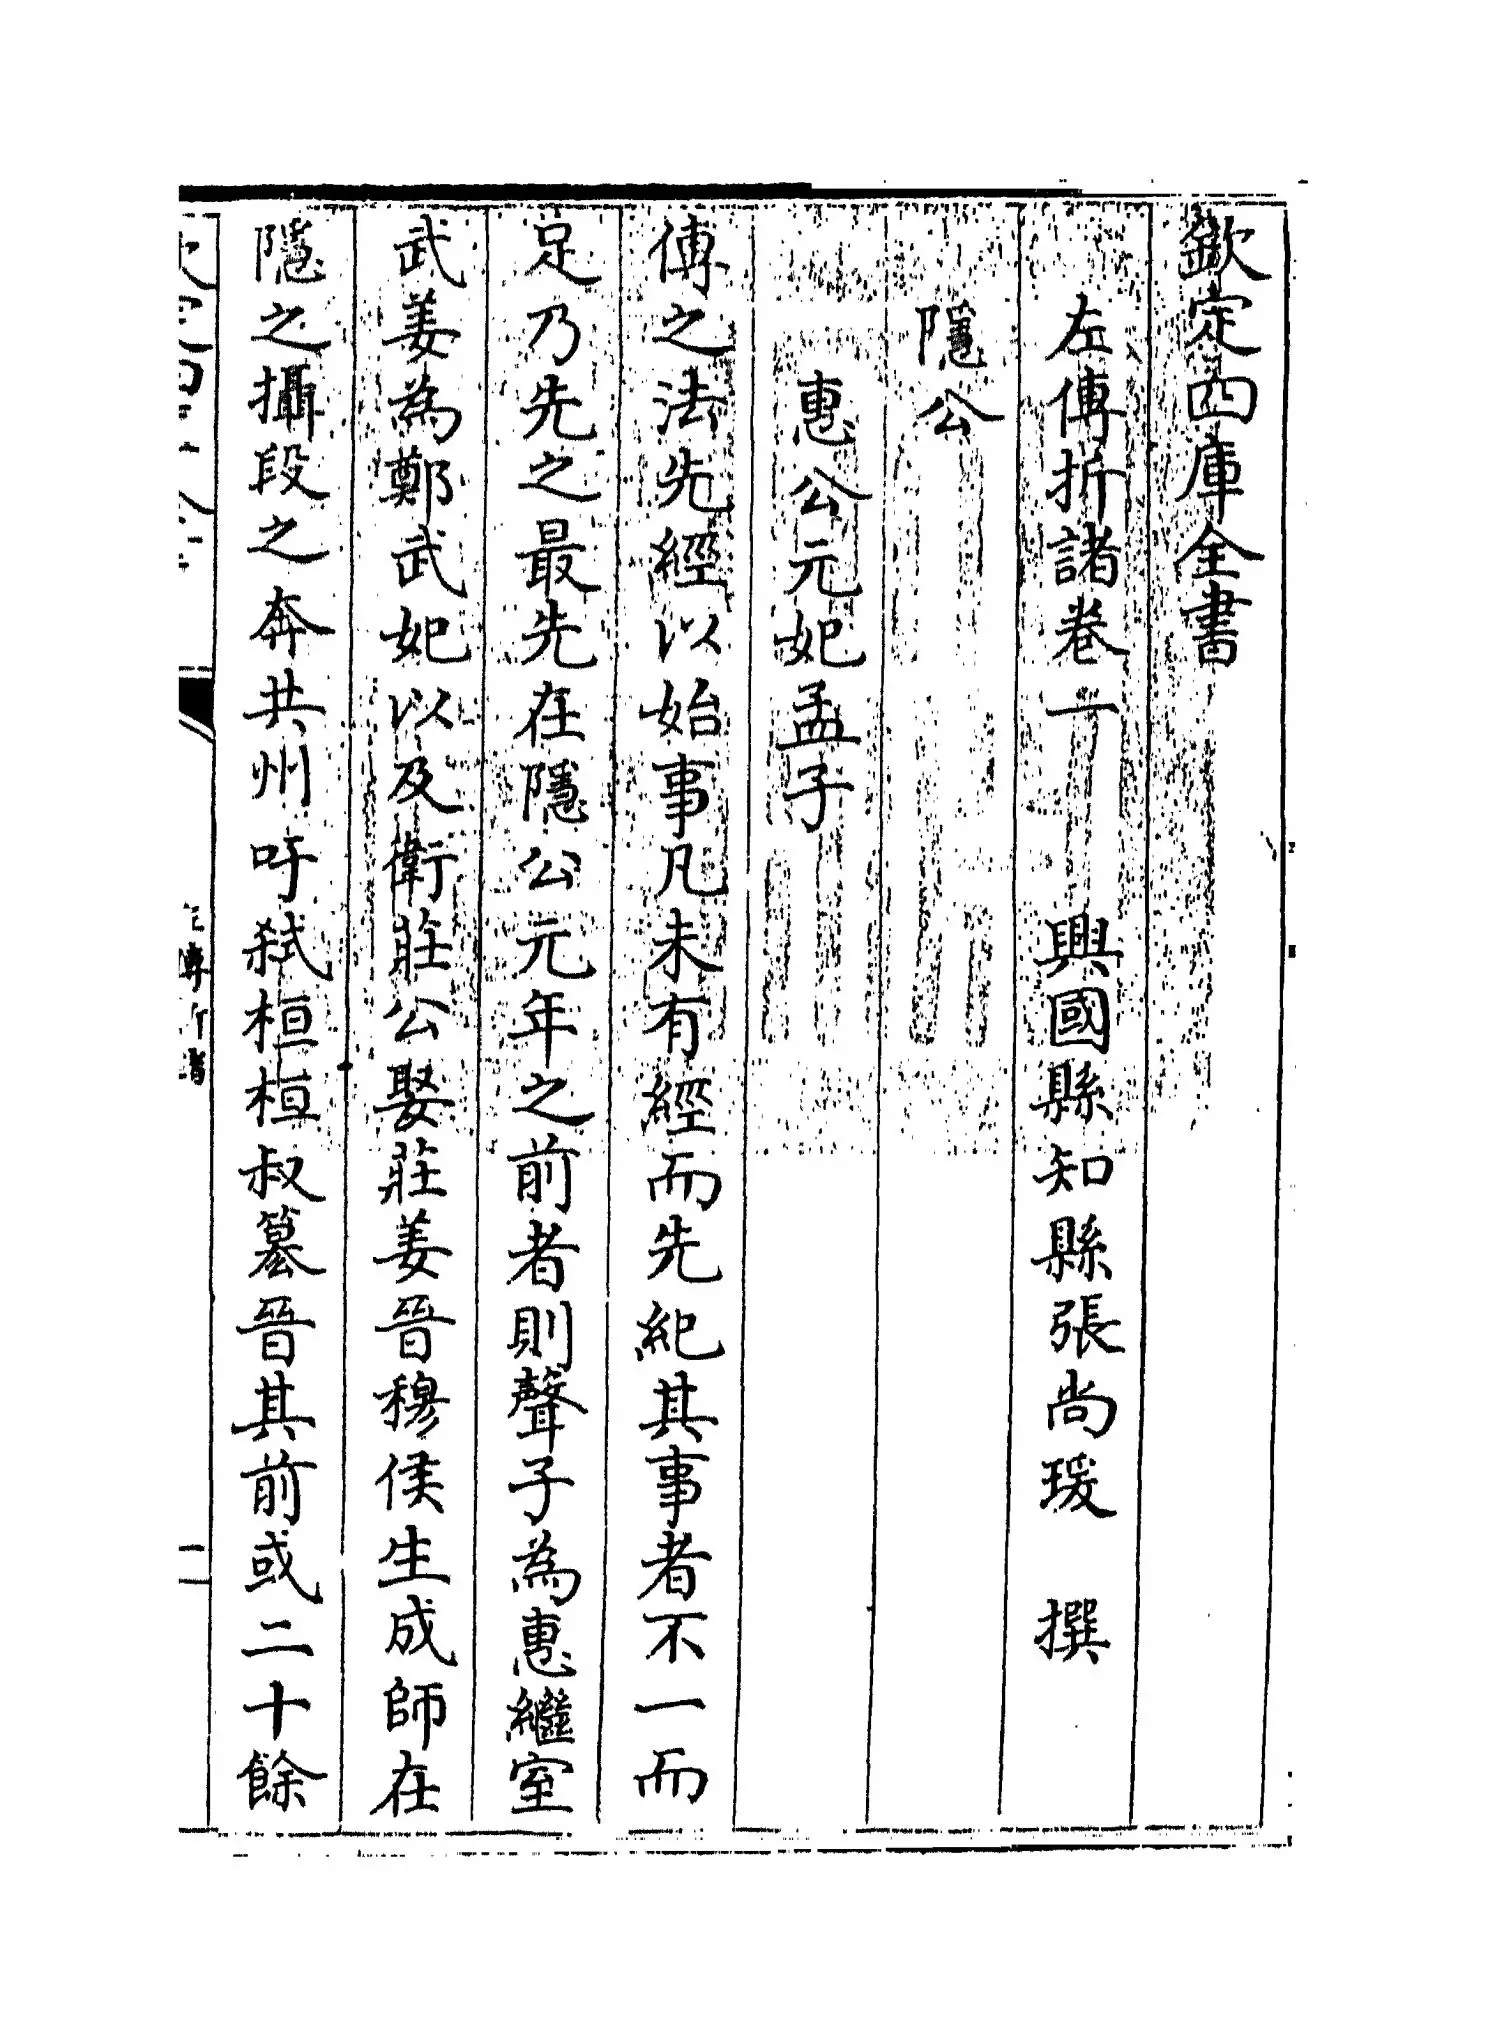 欽定四庫全書
左傳折諸卷一　興國縣知縣張尚瑗　撰
隱公
惠公元妃孟子
傳之法先經以始事凡未有經而先紀其事者不一而
足乃先之最先在隱公元年之前者則聲子為惠繼室
武姜為鄭武妃以及衛莊公娶莊姜晉穆侯生成師在
隱之攝段之奔共州吁弑桓桓叔簒晉其前或二十餘